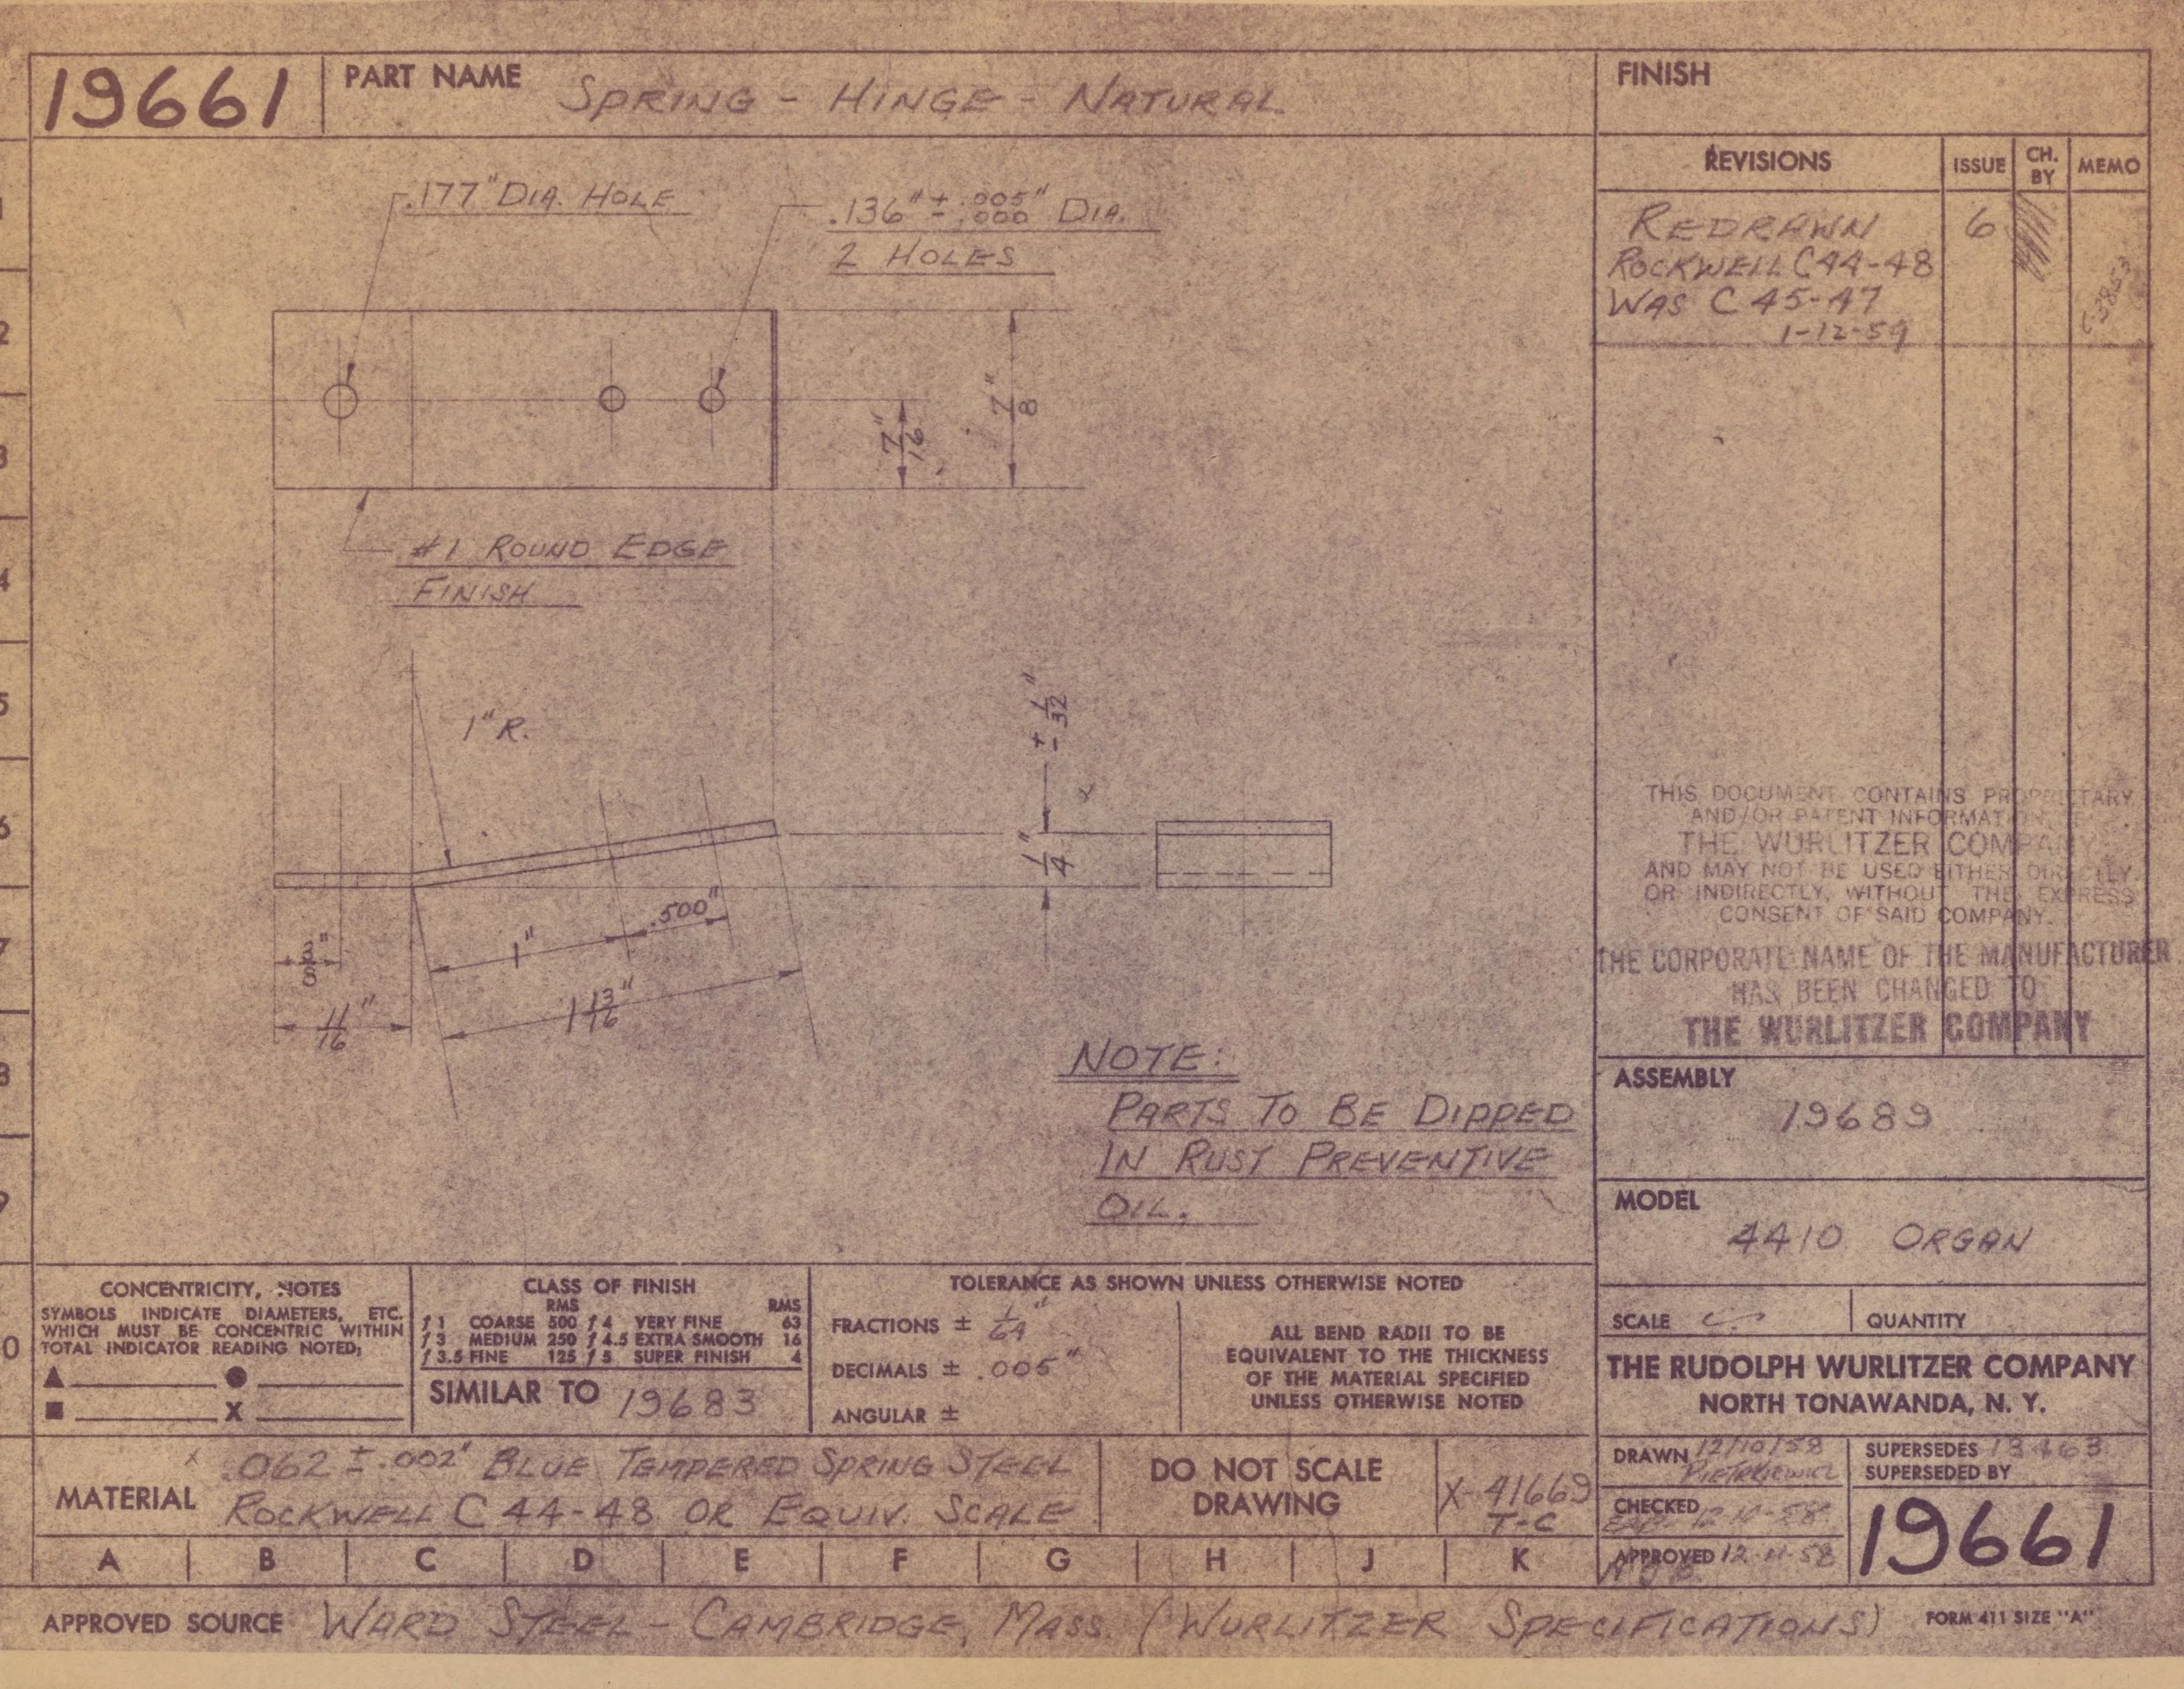 19661
PART NAME SPRING - HINGE - NATURAL
FINISH
REVISIONS ISSUE CH. BY MEMO
REDRAWN 6
ROCKWELL C 44-48
WAS C 45-47
1-12-59
.177" DIA. HOLE
.136" ± .005" .000 DIA.
2 HOLES
7/16"
7/8"
#1 ROUND EDGE
FINISH
1" R.
± 1/32"
1/4"
3/8"
11/16"
1"
.500"
1 13/16"
NOTE:
PARTS TO BE DIPPED
IN RUST PREVENTIVE
OIL.
THIS DOCUMENT CONTAINS PROPRIETARY
AND/OR PATENT INFORMATION
THE WURLITZER COMPANY
AND MAY NOT BE USED EITHER DIRECTLY
OR INDIRECTLY, WITHOUT THE EXPRESS
CONSENT OF SAID COMPANY.
THE CORPORATE NAME OF THE MANUFACTURER
HAS BEEN CHANGED TO
THE WURLITZER COMPANY
ASSEMBLY
19689
MODEL
4410 ORGAN
SCALE
QUANTITY
THE RUDOLPH WURLITZER COMPANY
NORTH TONAWANDA, N. Y.
CONCENTRICITY, NOTES
SYMBOLS INDICATE DIAMETERS, ETC.
WHICH MUST BE CONCENTRIC WITHIN
TOTAL INDICATOR READING NOTED;
X
CLASS OF FINISH
RMS RMS
ƒ 1 COARSE 500 ƒ 4 VERY FINE 63
ƒ 3 MEDIUM 250 ƒ 4.5 EXTRA SMOOTH 16
ƒ 3.5 FINE 125 ƒ 5 SUPER FINISH 4
SIMILAR TO 19683
TOLERANCE AS SHOWN UNLESS OTHERWISE NOTED
FRACTIONS ± 1/64"
DECIMALS ± .005"
ANGULAR ±
ALL BEND RADII TO BE
EQUIVALENT TO THE THICKNESS
OF THE MATERIAL SPECIFIED
UNLESS OTHERWISE NOTED
MATERIAL
.062 ± .002" BLUE TEMPERED SPRING STEEL
ROCKWELL C 44-48 OR EQUIV. SCALE
DO NOT SCALE
DRAWING
X-41669
T-C
DRAWN 12/10/58
PIETRKIEWICZ
CHECKED
APPROVED 12-11-58
SUPERSEDES
SUPERSEDED BY
19661
A B C D E F G H J K
APPROVED SOURCE WARD STEEL - CAMBRIDGE, MASS. (WURLITZER SPECIFICATIONS)
FORM 411 SIZE "A"
1
2
3
4
5
6
7
8
9
0